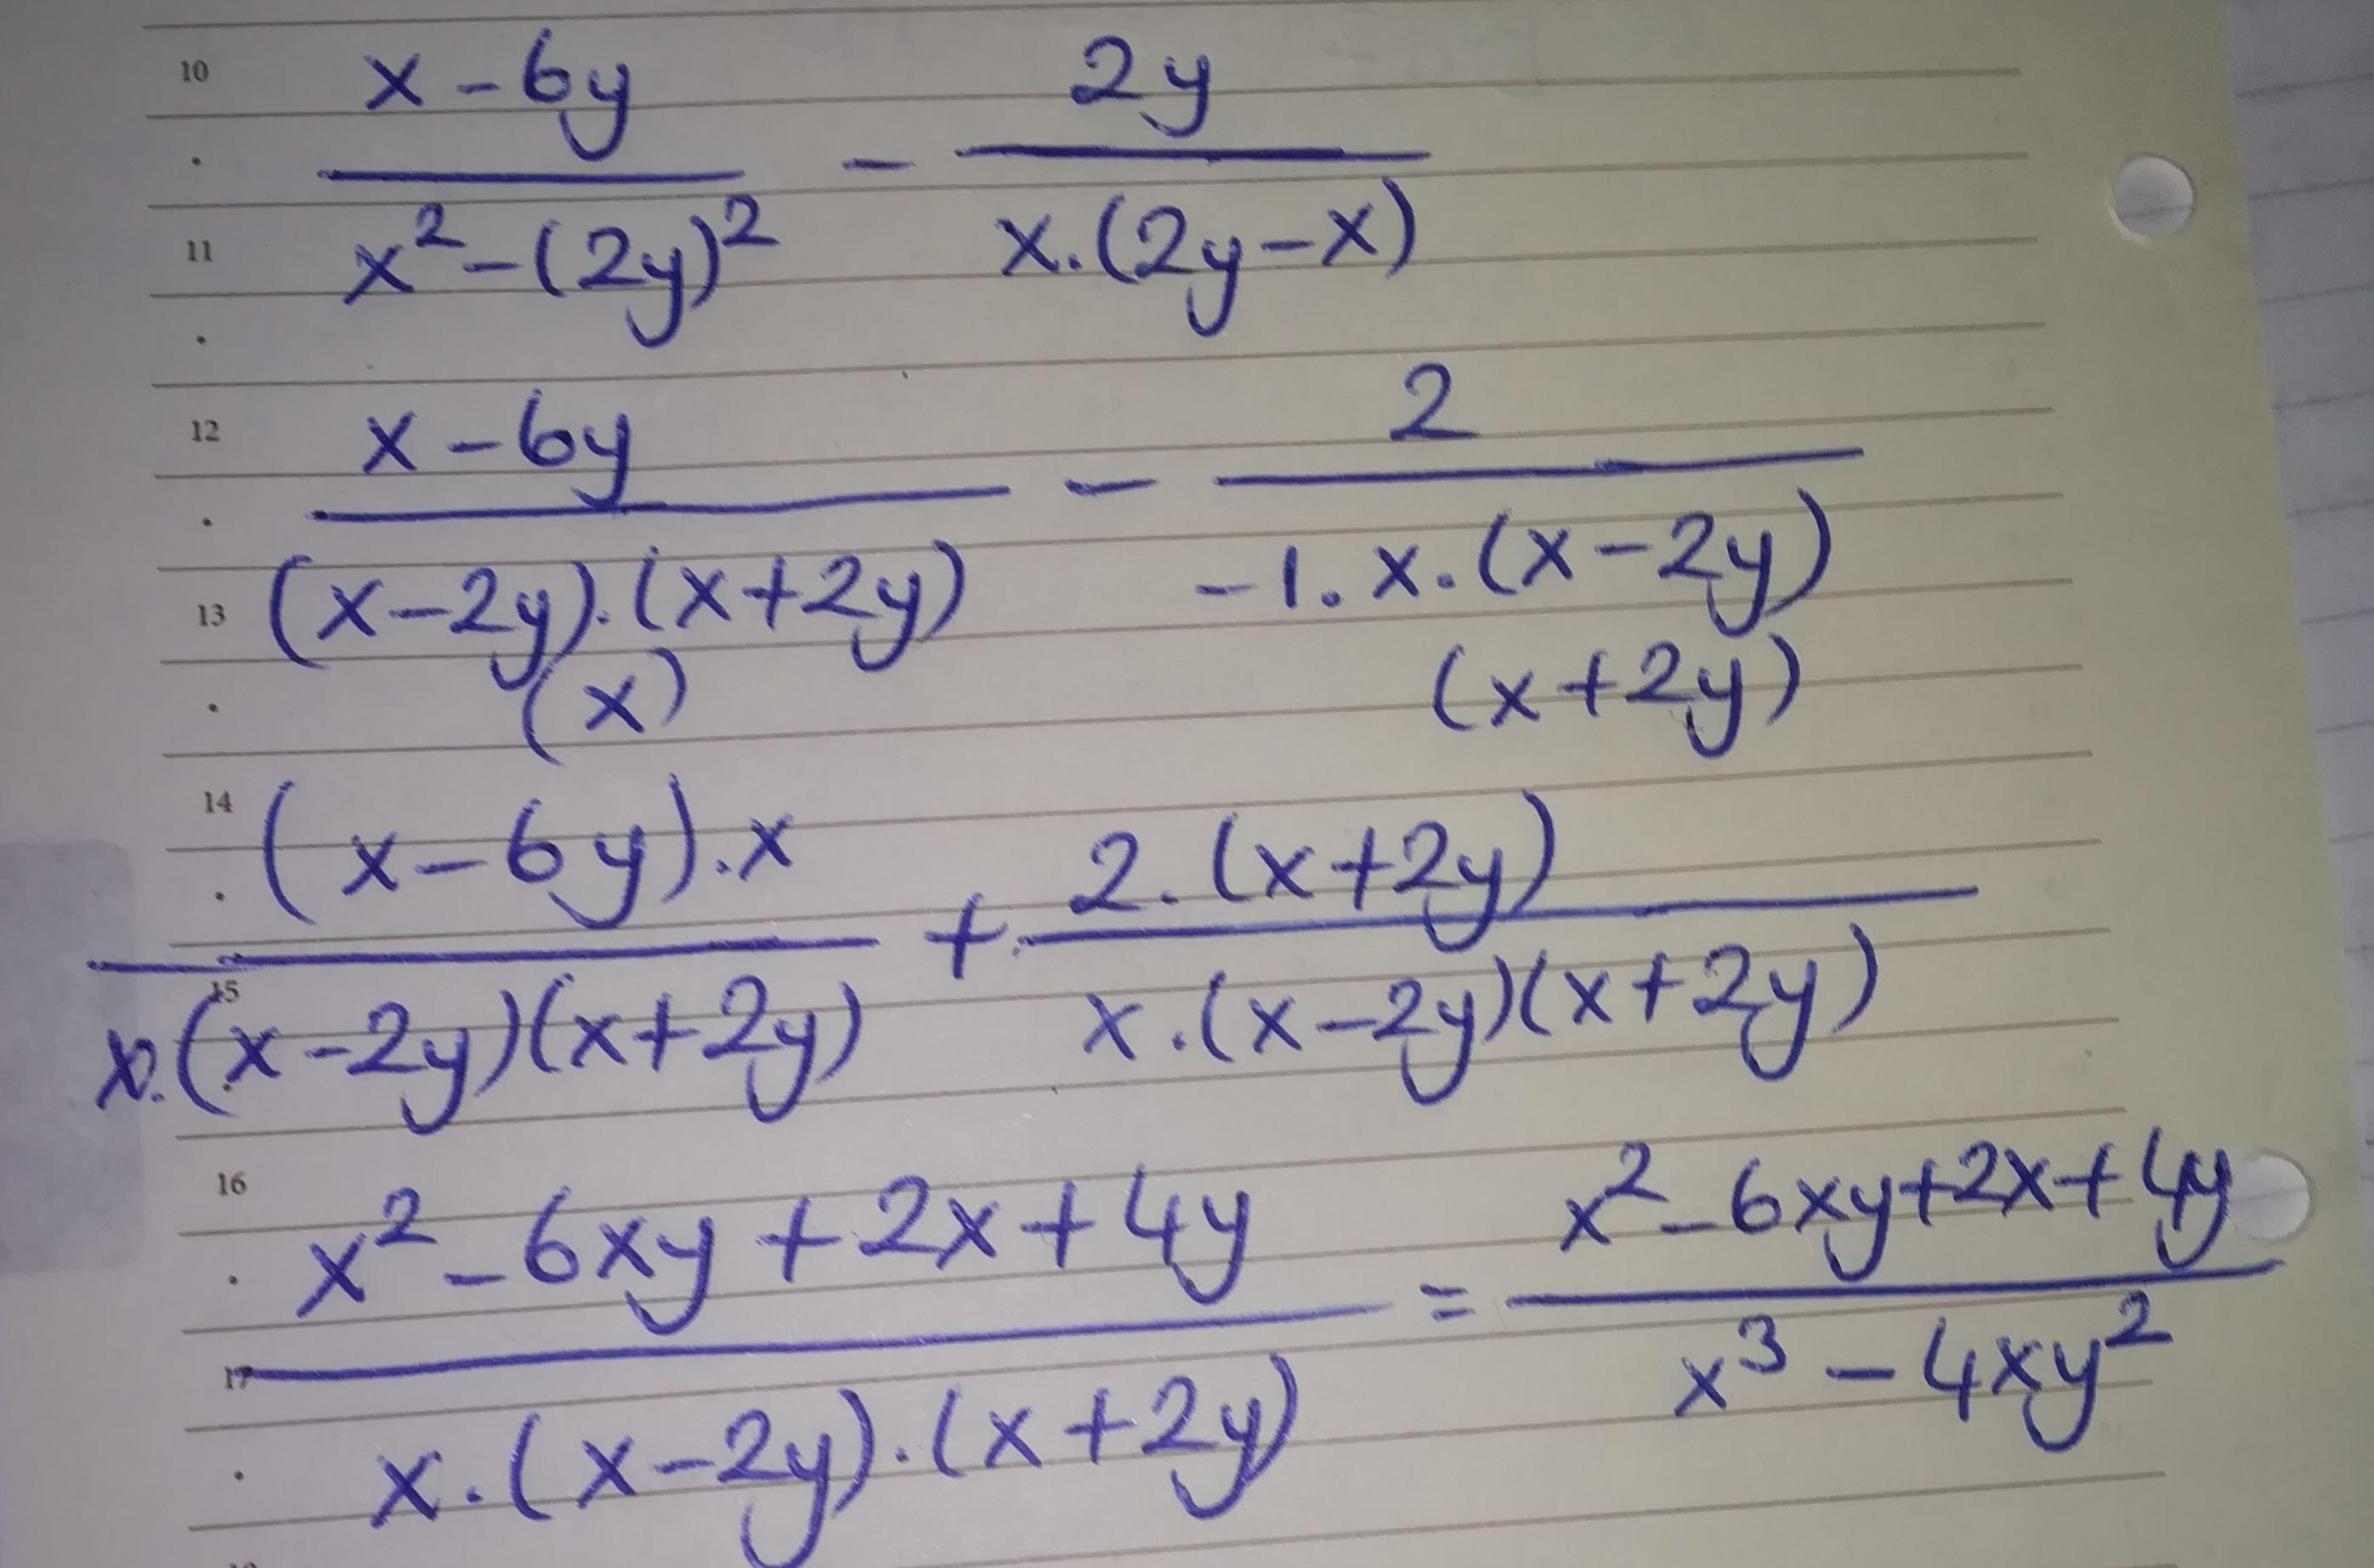 10 x - 6y / x² - (2y)² - 2y / x.(2y - x)
11
12 x - 6y / (x - 2y).(x + 2y) - 2 / -1.x.(x - 2y)
13 (x) (x + 2y)
14 (x - 6y).x / x.(x - 2y)(x + 2y) + 2.(x + 2y) / x.(x - 2y)(x + 2y)
15
16 x² - 6xy + 2x + 4y / x.(x - 2y).(x + 2y) = x² - 6xy + 2x + 4y / x³ - 4xy²
17